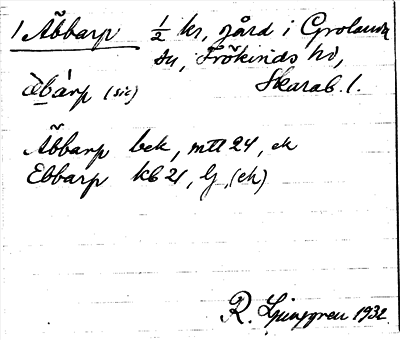 1 Åbbarp ½ kr, gård i Grolanda
sn, Frökinds hd,
Skarab. l.
(sic)
Åbbarp bek, mtl 24, ek
Ebbarp kb 21, lj, (ek)
R. Ljunggren 1932